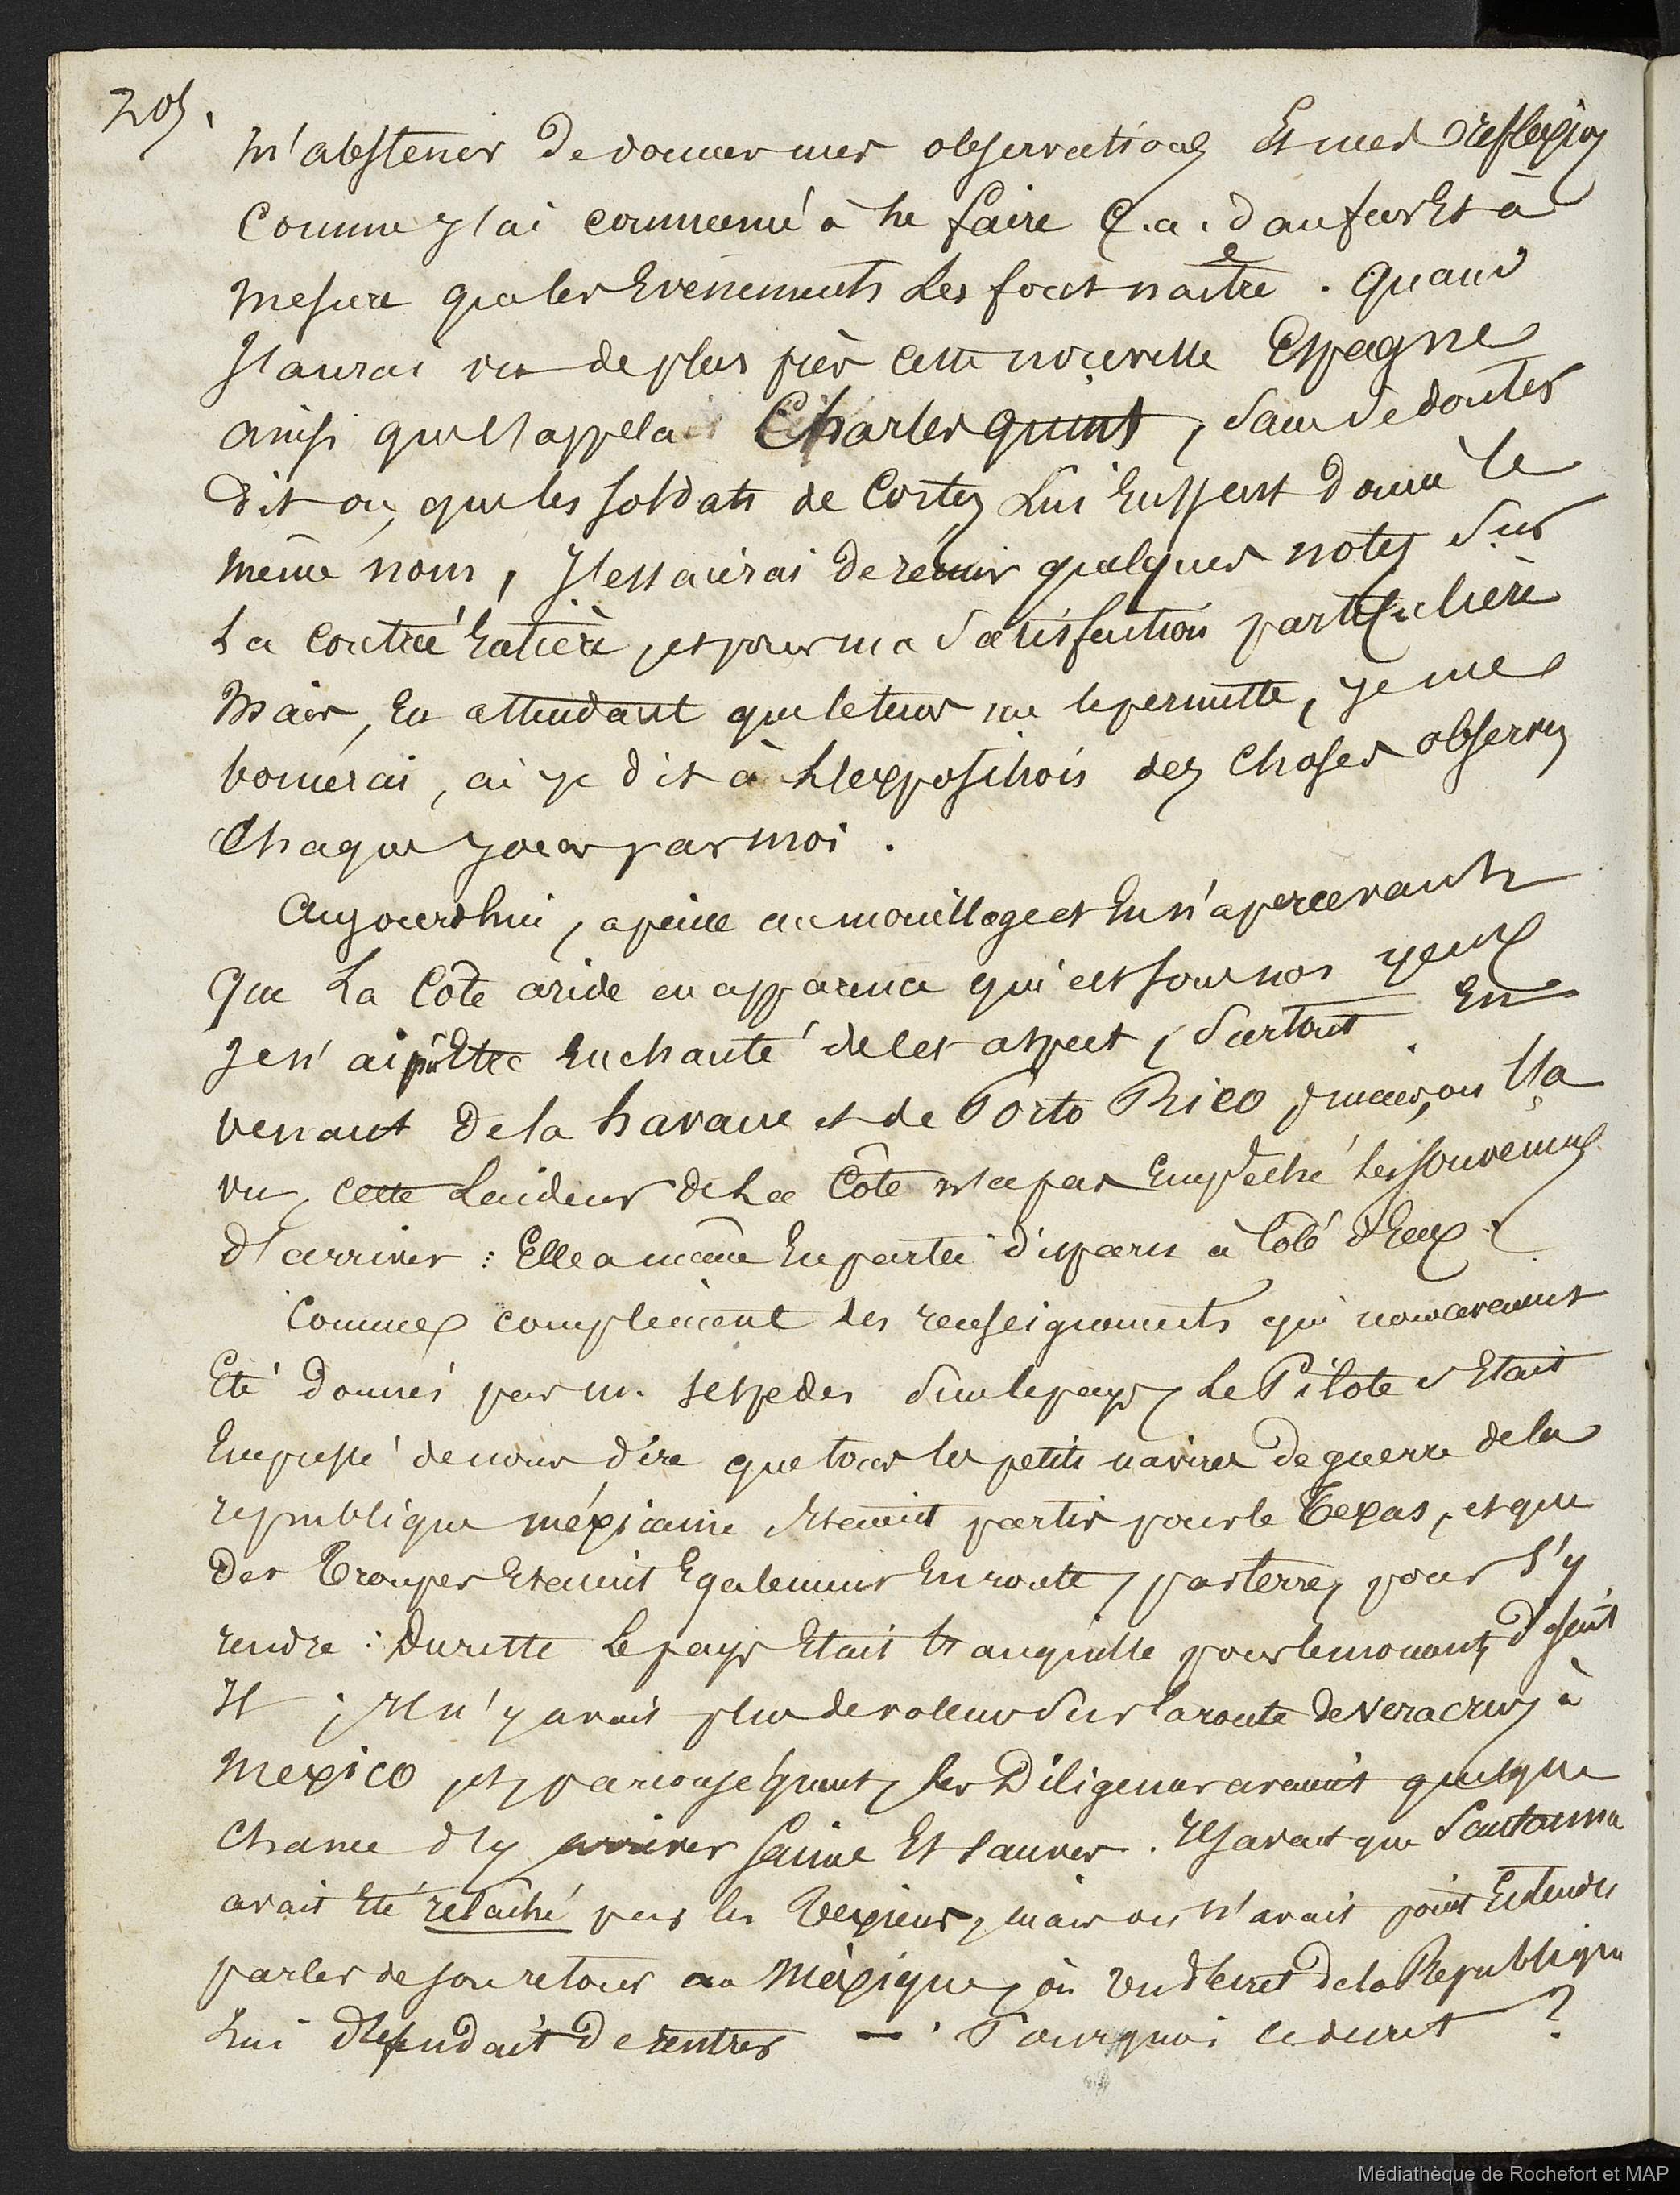 205.
m'abstenir de donner mes observations et mes reflexions
comme j'ai commencé à le faire c.a.d au fur et à
mesure que les Evénements les font naître. Quand
J'aurai vu de plus près cette nouvelle Espagne
ainsi que l'appela Charles quint, sans se douter
dit on, que les soldats de Cortez lui Eussent donné le
même nom, J'essaierai de réunir quelques notes sur
la contrée Entière, et pour ma satisfaction particulière
Mais, En attendant que le tems me le permette, je me
bornerai, ai je dit à l'exposition des choses observées
Chaque jour par moi.
Aujourdhui, a peine au mouillage et En n'apercevant
que la Côte aride en apparence qui est sous nos yeux
Je n'ai pû Etre Enchanté de cet aspect, surtout En
venant de la havane et de Porto Rico; mais, on l'a
vu, cette laideur de la Côte n'a pas Empêché les souvenirs
d'arriver : Elle a même En partie disparu à Côté d'Eux.
Comme complément des renseignements qui nous avaient
Eté donnés par m. sespedes sur le pays, le Pilote s'Etait
Empressé de nous dire que tous les petits navires de guerre de la
republique méxicaine Etaient partis pour le Texas, et que
des Troupes Etaient Egalement En route, par terre, pour s'y
rendre : Du reste le pays Etait tranquille pour le moment, disait
Il ; Il n'y avait plus de voleurs sur la route de Veracruz à
Mexico, et, par conséquent, les Diligences avaient quelque
Chance d'y arriver saines Et sauves. Il savait que Santanna
avait Eté relâché par les Texiens, mais on n'avait point Entendu
parler de son retour au Méxique, où un décret de la Republique
lui défendait de rentrer — . Pourquoi ce decret ?
Médiathèque de Rochefort et MAP